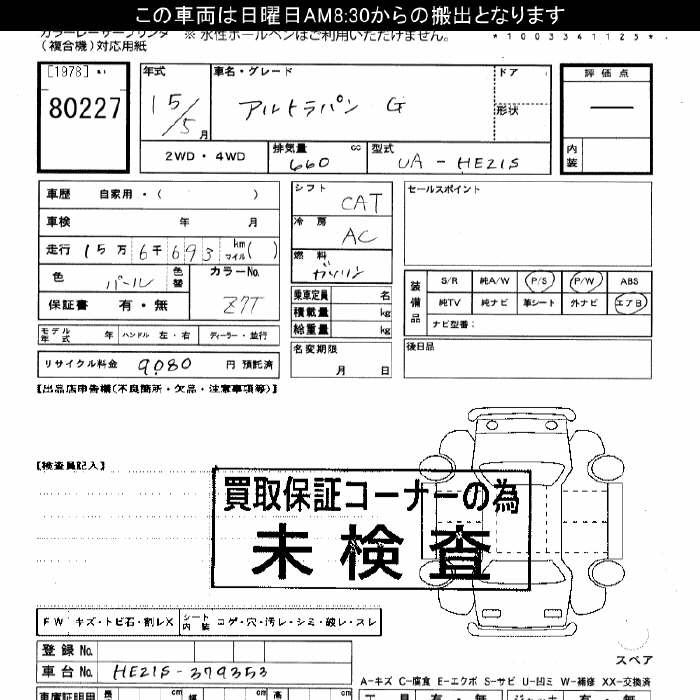 この車両は日曜日AM8:30からの搬出となります
カラーレーザープリンタ ※ 水性ボールペンはご利用いただけません。 *1003341125*
(複合機)対応用紙
[1978]
80227
年式 15/5月
車名・グレード アルトラパン G
ドア
形状
評価点 —
内装
2WD・4WD
排気量 cc 660
型式 UA-HE21S
車歴 自家用・( )
車検 年 月
走行 15万6千693 kmマイル( )
色 パール 色替
カラーNo. Z7T
保証書 有・無
モデル年式 年 ハンドル 左・右 ディーラー・並行
リサイクル料金 9080 円 預託済
シフト CAT
冷房 AC
燃料 ガソリン
乗車定員 名
積載量 kg
総重量 kg
名変期限 月 日
セールスポイント
装備品
S/R 純A/W P/S P/W ABS
純TV 純ナビ 革シート 外ナビ エアB
ナビ型番:
後日品
【出品店申告欄(不良箇所・欠品・注意事項等)】
【検査員記入】
買取保証コーナーの為
未検査
FW キズ・トビ石・割レX シート内装 コゲ・穴・汚レ・シミ・破レ・スレ
登録No.
車台No. HE21S-379353
スペア
A-キズ C-腐食 E-エクボ S-サビ U-凹ミ W-補修 XX-交換済
車庫証明用 長 cm 幅 cm 高 cm
工具 有・無 ジャッキ 有・無